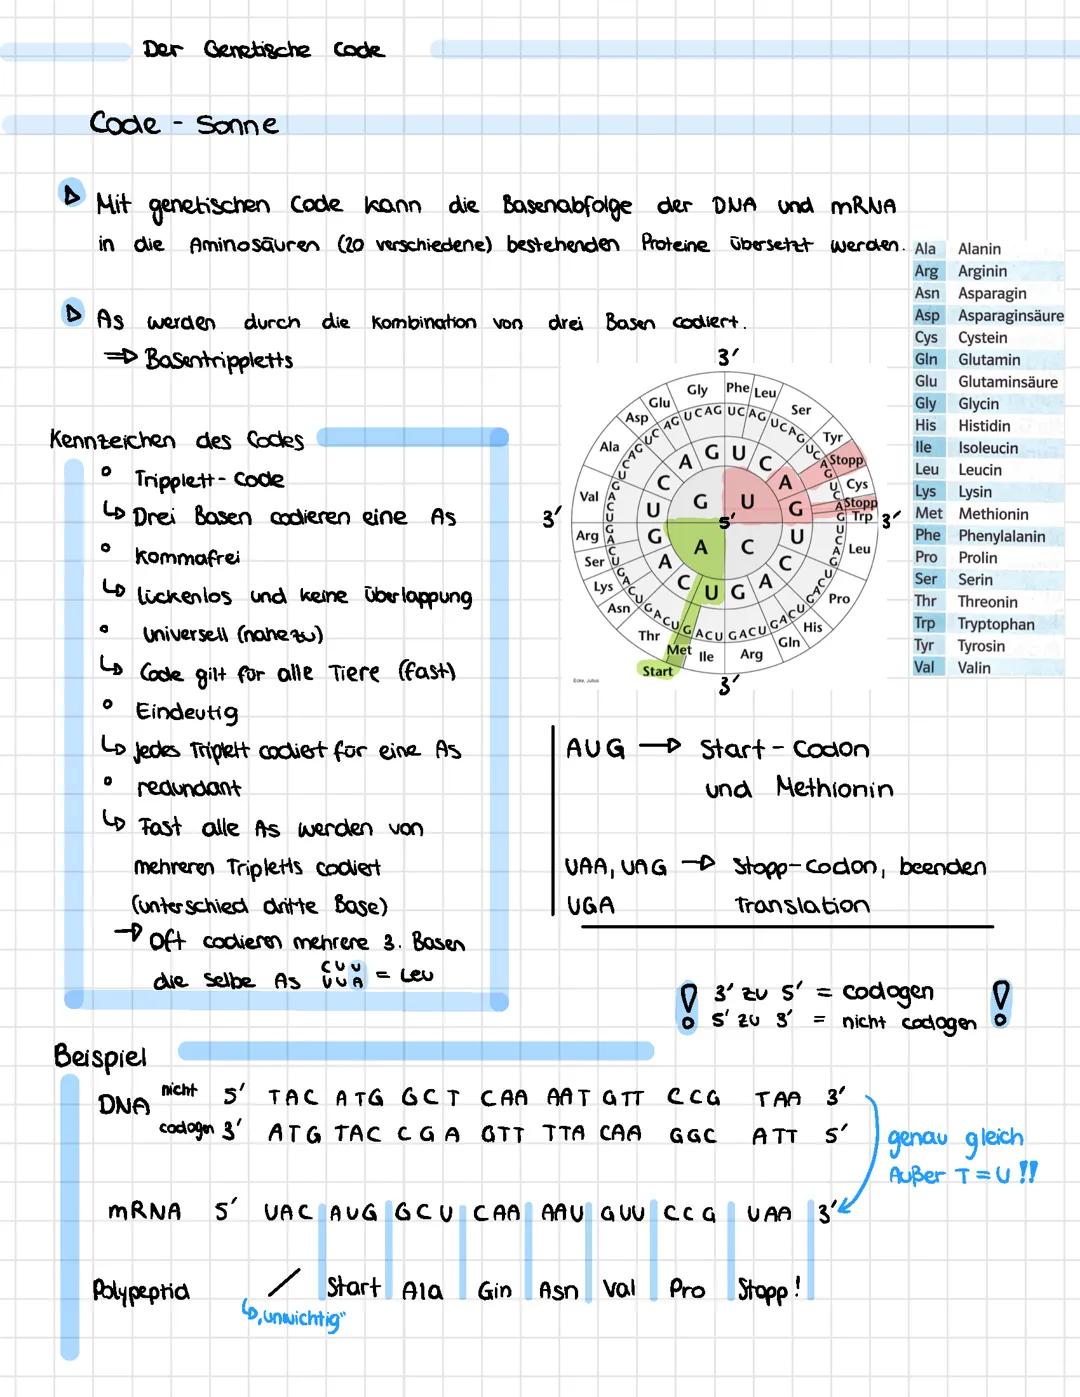 Der Genetische Code
Code - Sonne
Mit genetischen Code kann die Basenabfolge der DNA und mRNA
in die Aminosäuren (20 verschiedene) bestehenden Proteine übersetzt werden.
As werden durch die Kombination von drei Basen codiert.
⇒ Basentrippletts
Ala Alanin
Arg Arginin
Asn Asparagin
Asp Asparaginsäure
Cys Cystein
Gln Glutamin
Glu Glutaminsäure
Gly Glycin
His Histidin
Ile Isoleucin
Leu Leucin
Lys Lysin
Met Methionin
Phe Phenylalanin
Pro Prolin
Ser Serin
Thr Threonin
Trp Tryptophan
Tyr Tyrosin
Val Valin
3'
Gly Phe Leu Ser Tyr Stopp Cys Stopp Trp Leu Pro His Gln Arg Ile Met Start Thr Asn Lys Ser Arg Val Ala Asp Glu
G U A C
5'
3'
3'
3'
Kennzeichen des Codes
° Tripplett - Code
↳ Drei Basen codieren eine As
° Kommafrei
↳ lückenlos und keine Überlappung
° Universell (nahezu)
↳ Code gilt für alle Tiere (fast)
° Eindeutig
↳ jedes Triplett codiert für eine As
° redundant
↳ Fast alle As werden von
mehreren Tripletts codiert
(unterschied dritte Base)
→ Oft codieren mehrere 3. Basen
die selbe As CUU UUA = Leu
AUG → Start - Codon
und Methionin
UAA, UAG → Stopp-Codon, beenden
UGA Translation
! 3' zu 5' = codogen !
5' zu 3' = nicht codogen
Beispiel
DNA nicht 5' TAC ATG GCT CAA AAT GTT CCG TAA 3'
codogen 3' ATG TAC CGA GTT TTA CAA GGC ATT 5'
genau gleich
Außer T = U !!
mRNA 5' UAC AUG GCU CAA AAU GUU CCG UAA 3'
Polypeptid / Start Ala Gin Asn Val Pro Stopp!
↳ „unwichtig"